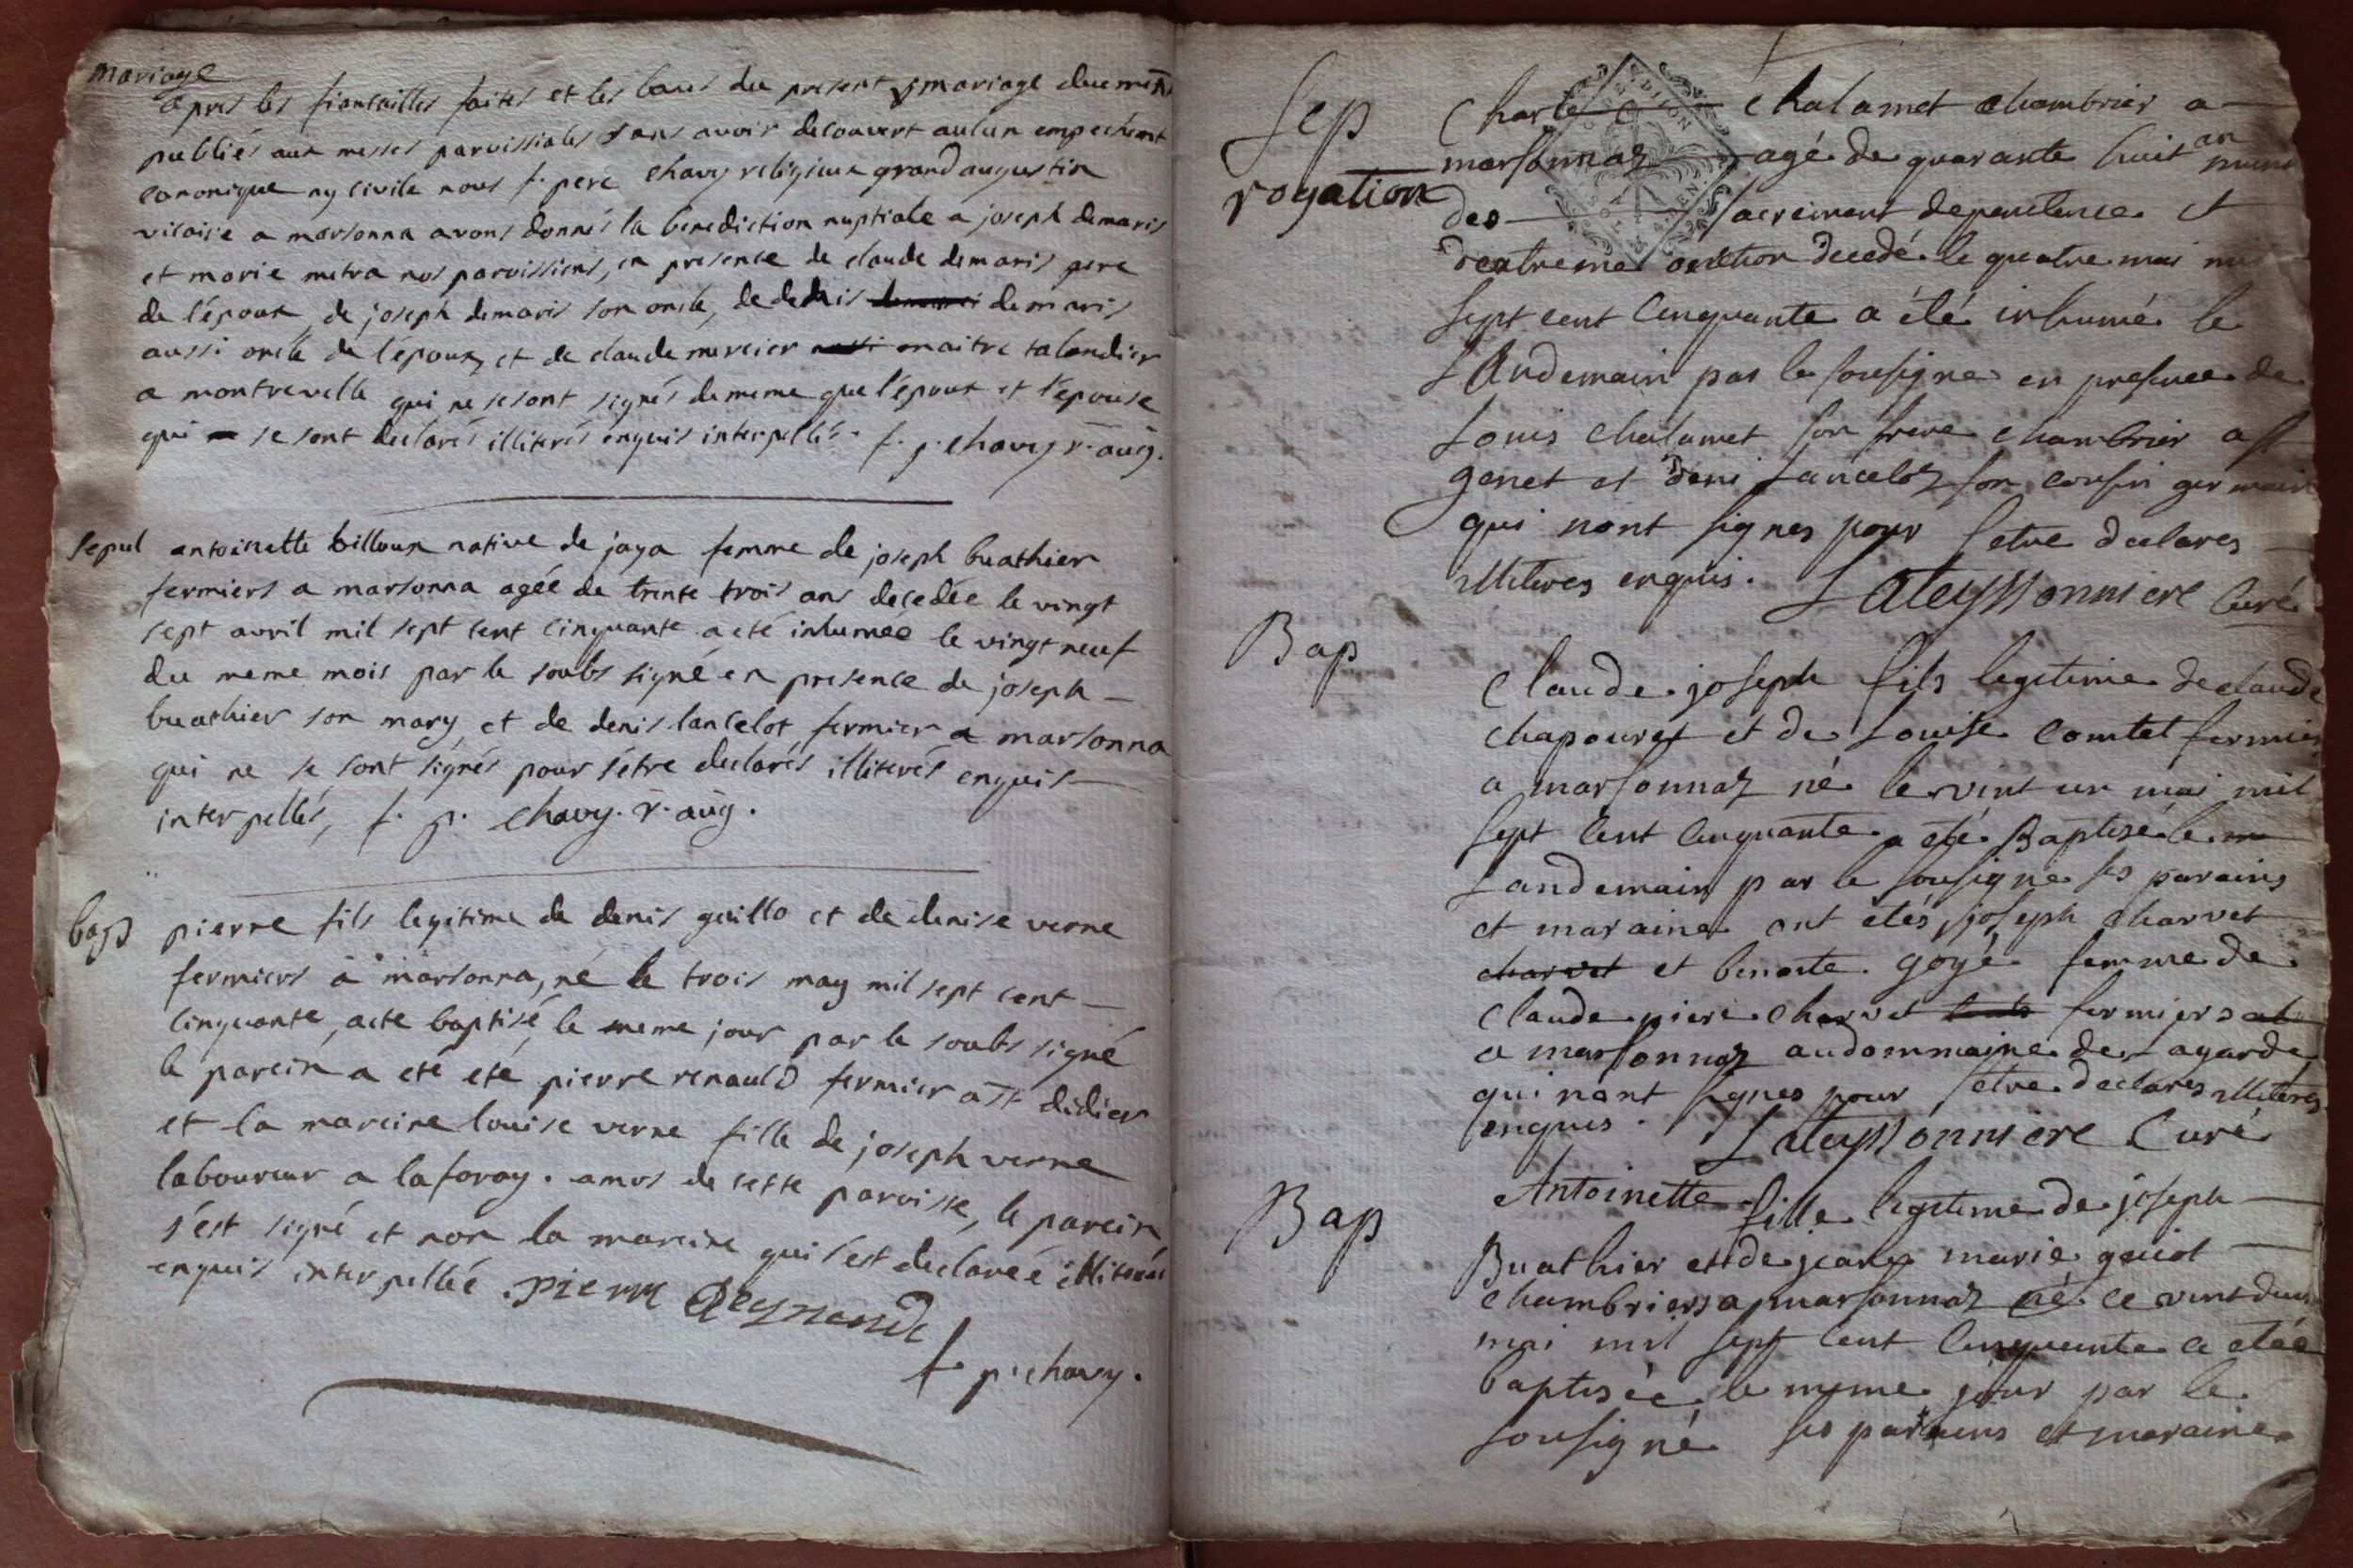 mariage
apres les fiansailles faites et les bans du present mariage duement
publiés aux messes parroissiales sans avoir decouvert aucun empechement
canonique ny civile nous f. pere chavy religieux grand augustin
vicaire a marsonna avons donnés la benediction nuptiale a joseph demaris
et marie metra nos paroissiens, en presence de claude demaris pere
de l'époux, de joseph demaris son oncle, de denis demaris
aussi oncle de l'époux, et de claude mercier maitre talandier
a montrevelle qui ne se sont signés de meme que l'époux et l'épouse
qui se sont declarés illiterés enquis interpellés. f. p. chavy r. aug.
sepul antoinette billoux native de jaya femme de joseph buathier
fermiers a marsonna agée de trente trois ans decedée le vingt
sept avril mil sept cent cinquante a eté inhumée le vingt neuf
du meme mois par le soubs signé en presence de joseph
buathier son mary, et de denis lancelot fermier a marsonna
qui ne se sont signés pour s'étre declarés illiterés enquis
interpellés, f. p. chavy. r. aug.
bap pierre fils legitime de denis guillo et de denise verne
fermiers a marsonna, né le trois may mil sept cent
cinquante, a ete baptisé le meme jour par le soubs signé
le parein a eté eté pierre renauld fermier a st didier
et la mareine louise verne fille de joseph verne
laboureur a la foray. amos de cette paroisse, le parein
s'est signé et non la mareine qui s'est declarée illiterée
enquis interpellée. pierre Reynaud
f. p. chavy.
Sep Charle chalamet chambrier a
rogation marsonnaz agé de quarante huit an muni
des sacreiment de penetence et
dextreme onction decedé le quatre mai mil
sept cent cinquante a été inhumé le
Landemain par le sousigne en presence de
Louis chalamet son frere chambrier a st
genet et deni Lanceloz son cousin germain
qui nont signes pour setre declares
illiteres enquis. Lateyssonniere Curé
Bap
Claude joseph fils legitime de claude
chapouret et de Louise Comtet fermier
a marsonnaz né le vint un mai mil
sept cent cinquante a eté Baptisé le
Landemain par le sousigne ses parains
et maraine ont étés joseph charvet
charvet et benoite goyé femme de
Claude piere charvet fermiers
a marsonnaz au dommaine de Lagarde
qui nont signes pour setre declares illiteres
enquis. Lateyssonniere Curé
Bap Antoinette fille legitime de joseph
Buathier et de jeane marie guiot
chambriers a marsonnaz né le vint deux
mai mil sept cent cinquante a etée
baptisée le meme jour par le
sousigné ses parains et maraine